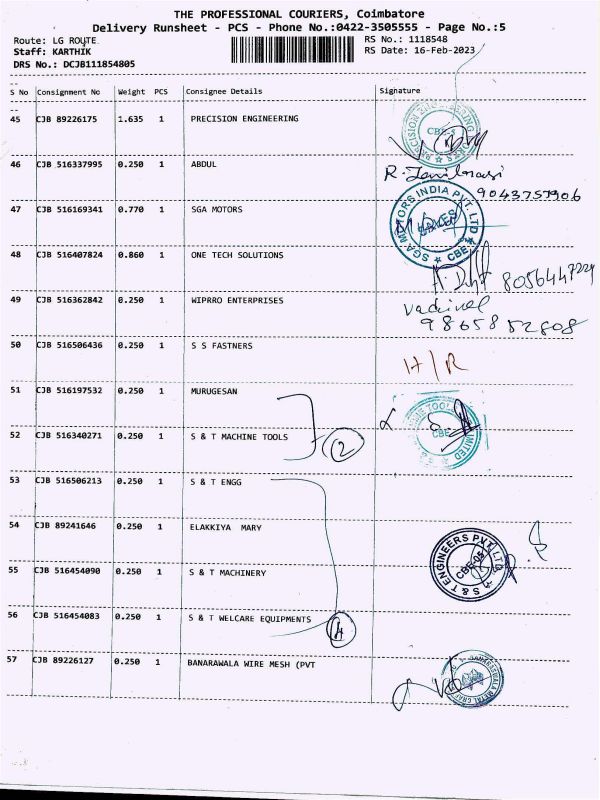 THE PROFESSIONAL COURIERS, Coimbatore
Delivery Runsheet - PCS - Phone No.:0422-3505555 - Page No.:5
Route: LG ROUTE
RS No.: 1118548
Staff: KARTHIK
RS Date: 16-Feb-2023
DRS No.: DCJB111854805
S No Consignment No Weight PCS Consignee Details Signature
45 CJB 89226175 1.635 1 PRECISION ENGINEERING
46 CJB 516337995 0.250 1 ABDUL
9043757906
47 CJB 516169341 0.770 1 SGA MOTORS
SGA MOTORS INDIA PVT. LTD CBE
48 CJB 516407824 0.860 1 ONE TECH SOLUTIONS
49 CJB 516362842 0.250 1 WIPRRO ENTERPRISES
Vadivel
9865852808
50 CJB 516506436 0.250 1 S S FASTNERS
H/R
51 CJB 516197532 0.250 1 MURUGESAN
52 CJB 516340271 0.250 1 S & T MACHINE TOOLS
2
53 CJB 516506213 0.250 1 S & T ENGG
54 CJB 89241646 0.250 1 ELAKKIYA MARY
S & T ENGINEERS PVT. LTD
55 CJB 516454090 0.250 1 S & T MACHINERY
56 CJB 516454083 0.250 1 S & T WELCARE EQUIPMENTS
4
57 CJB 89226127 0.250 1 BANARAWALA WIRE MESH (PVT